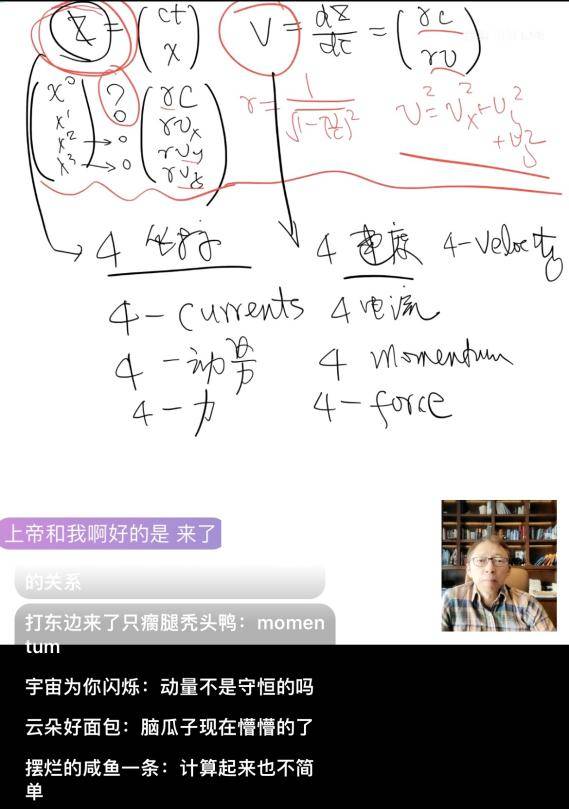 X = (ct x) V = dX/dτ = (rc rv)
x⁰ ? rc
x¹ 0 rvₓ r = 1/√(1-(v/c)²) v² = vₓ² + vᵧ² + v_z²
x² → 0 rvᵧ
x³ → 0 rv_z
4 4 速度 4-velocity
4-currents 4 电流
4-动 4 momentum
4-力 4-force
上帝和我啊好的是 来了
的关系
打东边来了只瘸腿秃头鸭：momen
tum
宇宙为你闪烁：动量不是守恒的吗
云朵好面包：脑瓜子现在懵懵的了
摆烂的咸鱼一条：计算起来也不简
单